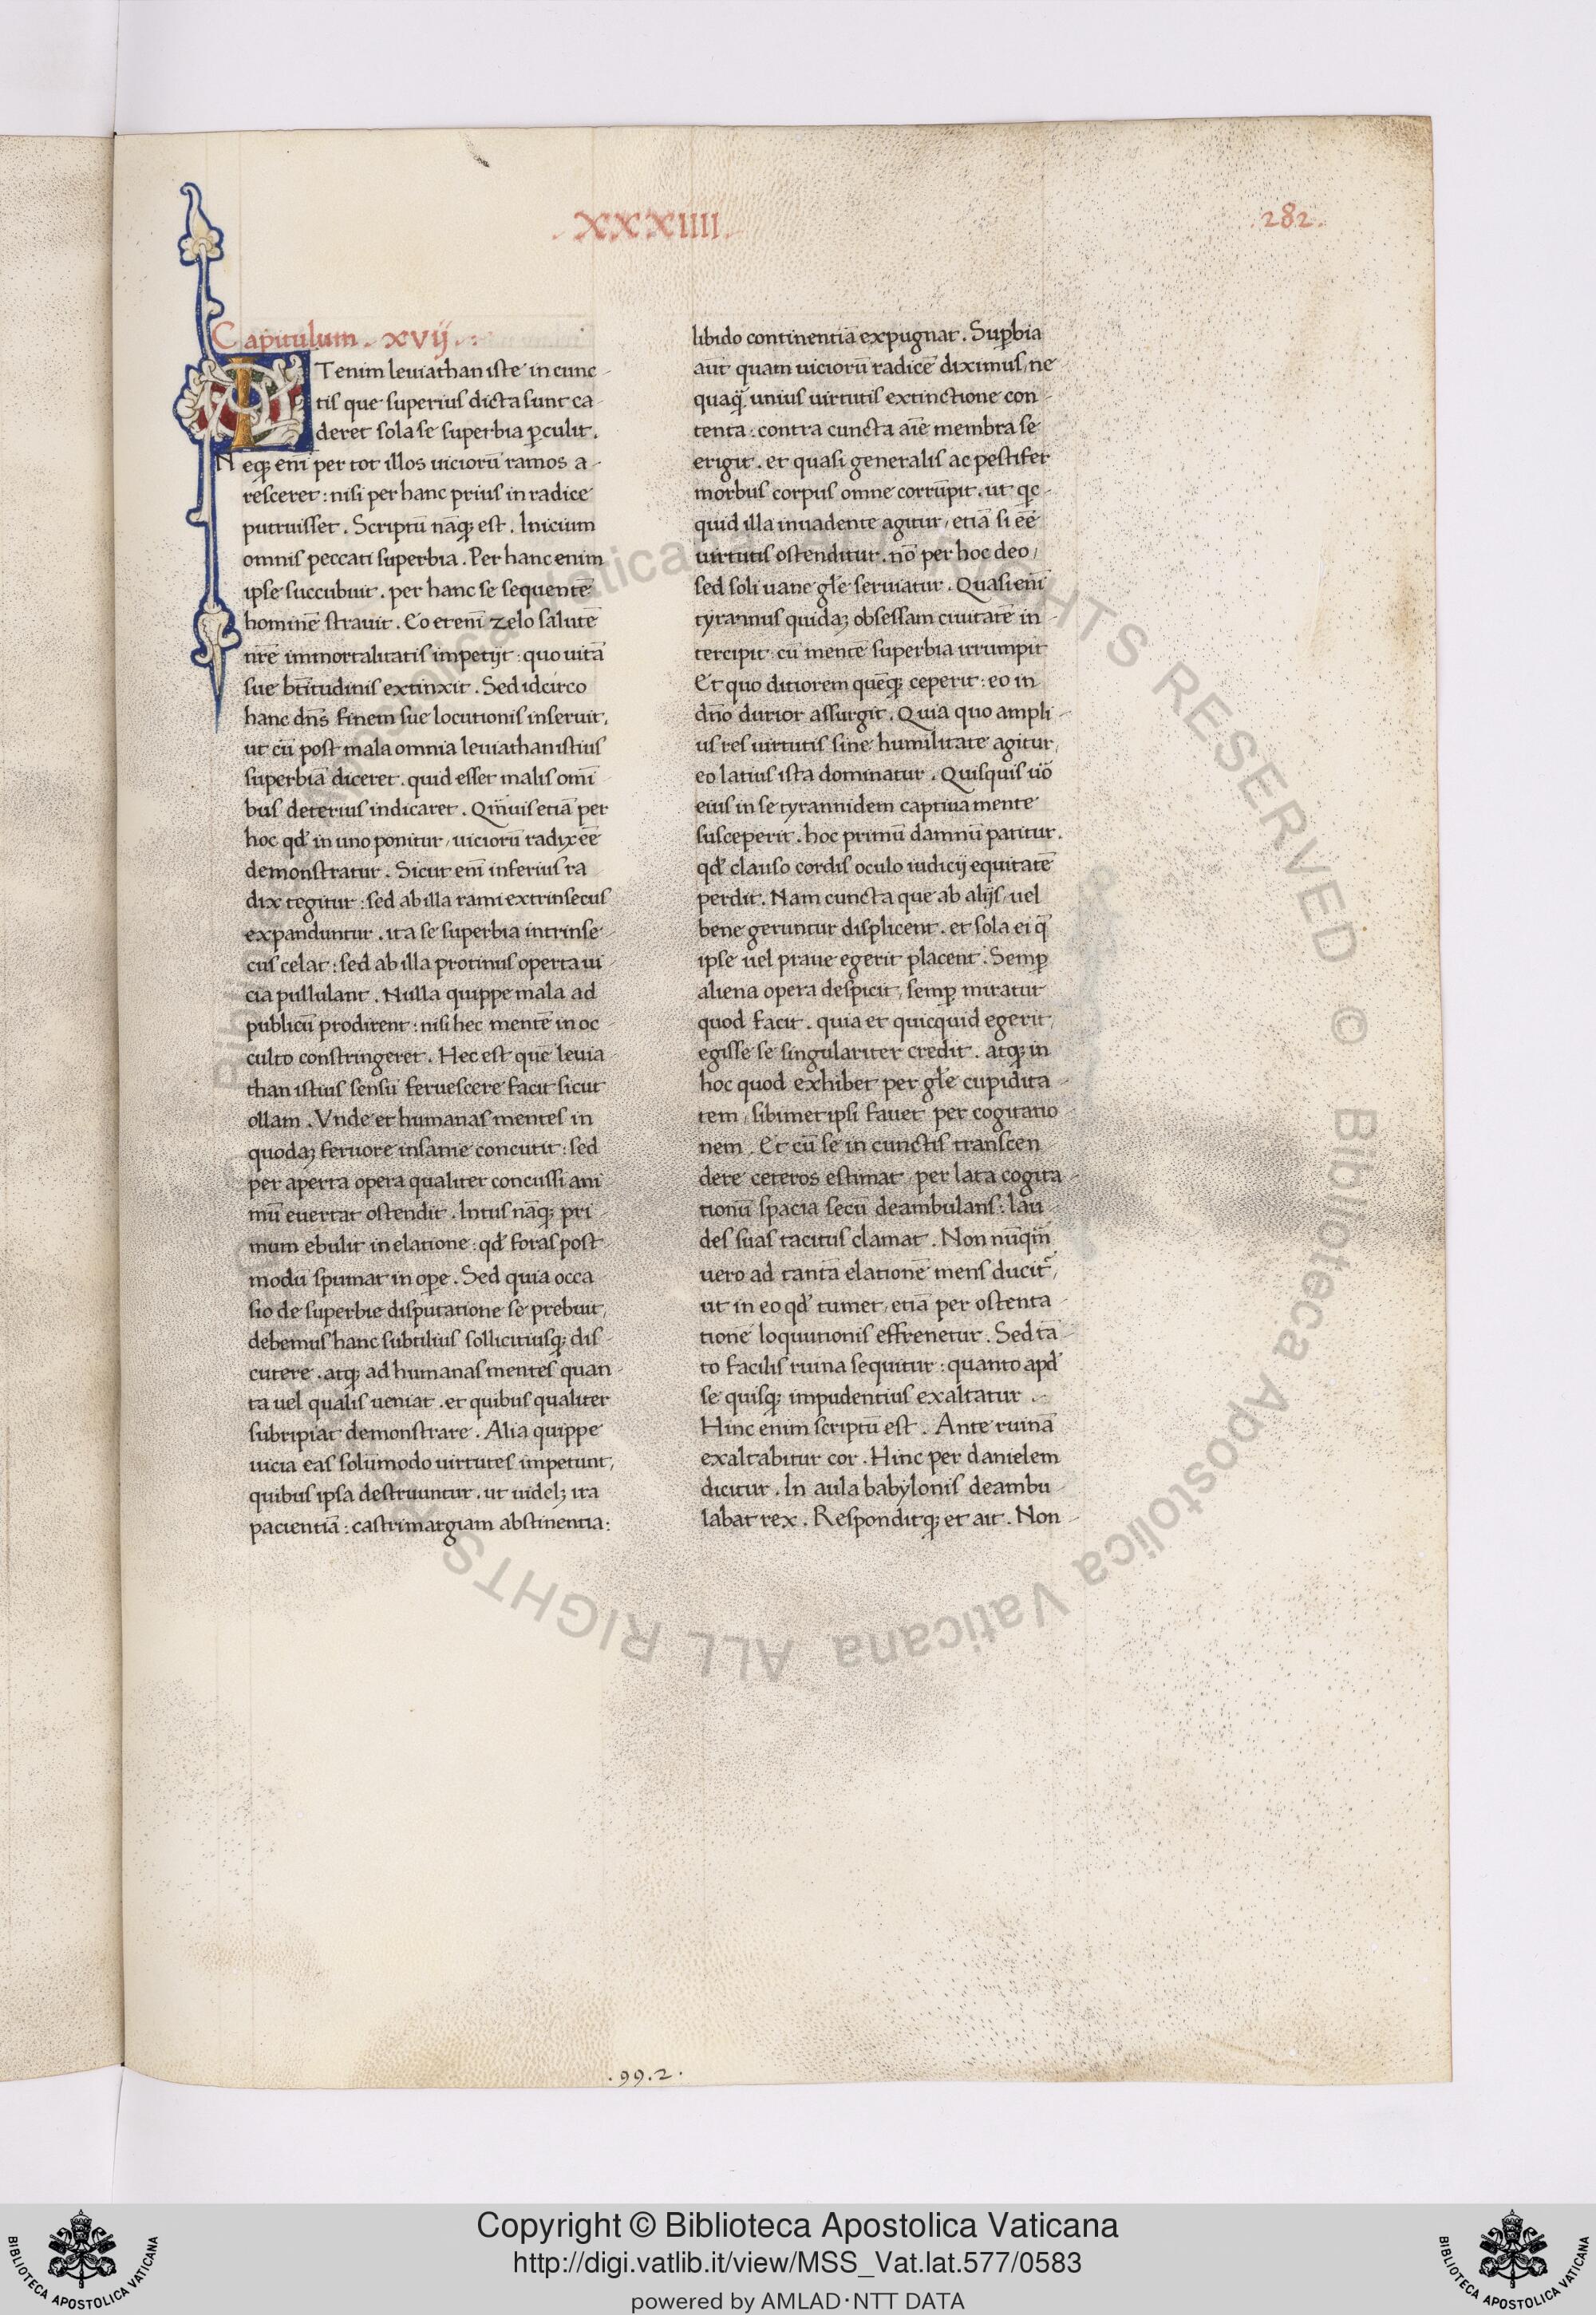 .XXXIIII.
.282.
Capitulum. xvij.:
ETenim leuiathan iste in cunc-
tis que superius dicta sunt ca-
deret sola se superbia ꝑculit.
Neqꝫ eni̅ per tot illos uicioru̅ ramos a-
resceret: nisi per hanc prius in radice
putruisset. Scriptu̅ na̅qꝫ est. Inicium
omnis peccati superbia. Per hanc enim
ipse succubuit. per hanc se sequente̅
homine̅ strauit. Eo eteni̅ zelo salute̅
nr̅e immortalitatis impetijt: quo uita̅
sue bt̅itudinis extinxit. Sed idcirco
hanc dn̅s finem sue locutionis inseruit,
ut cu̅ post mala omnia leuiathan istius
superbia̅ diceret. quid esset malis omi̅
bus deterius indicaret. Qm̅uis etia̅ per
hoc qđ in uno ponitur, uicioru̅ radix ee̅
demonstratur. Sicut eni̅ inferius ra
dix tegitur: sed ab illa rami extrinsecus
expanduntur. ita se superbia intrinse-
cus celat: sed ab illa protinus operta ui-
cia pullulant. Nulla quippe mala ad
publicu̅ prodirent: nisi hec mente̅ in oc-
culto constringeret. Hec est que leuia-
than istius sensu̅ feruescere facit sicut
ollam. Vnde et humanas mentes in
quodaꝫ feruore insanie concutit: sed
per aperta opera qualiter concussi ani-
mu̅ euertat ostendit. Intus na̅qꝫ pri-
mum ebulit in elatione: qđ foras post-
modu̅ spumat in oꝑe. Sed quia occa
sio de superbie disputatione se prebuit,
debemus hanc subtilius sollicitiusqꝫ dis-
cutere. atqꝫ ad humanas mentes quan-
ta uel qualis ueniat. et quibus qualiter
subripiat demonstrare. Alia quippe
uicia eas solu̅modo uirtutes impetunt,
quibus ipsa destruuntur. ut uidelꝫ ira
pacientia̅: castrimargiam abstinentia:
libido continentia̅ expugnat. Suꝑbia
aut̅ quam uicioru̅ radice̅ diximus, ne
quaqꝫ̅ unius uirtutis extinctione con-
tenta: contra cuncta ai̅e membra se
erigit. et quasi generalis ac pestifer
morbus corpus omne corru̅pit. ut qc̅-
quid illa inuadente agitur, etia̅ si ee̅
uirtutis ostenditur. no̅ per hoc deo,
sed soli uane gl̅e seruiatur. Quasi eni̅
tyrannus quidaꝫ obsessam ciuitate̅ in-
tercipit: cu̅ mente̅ superbia irrumpit
Et quo ditiorem que̅qꝫ ceperit: eo in
dn̅o durior assurgit. Quia quo ampli-
us res uirtutis sine humilitate agitur,
eo latius ista dominatur. Quisquis uo̅
eius in se tyrannidem captiua mente
susceperit. hoc primu̅ damnu̅ patitur.
qđ clauso cordis oculo iudicij equitate̅
perdit. Nam cuncta que ab alijs, uel
bene geruntur displicent. et sola ei q̅
ipse uel praue egerit placent. Semꝑ
aliena opera despicit, semꝑ miratur
quod facit. quia et quicquid egerit,
egisse se singulariter credit. atqꝫ in
hoc quod exhibet per gl̅e cupidita-
tem, sibimet ipsi fauet per cogitatio-
nem. Et cu̅ se in cunctis transcen-
dere ceteros estimat, per lata cogita-
tionu̅ spacia secu̅ deambulans: lau-
des suas tacitus clamat. Non nu̅qm̅
uero ad tanta̅ elatione̅ mens ducit᷑,
ut in eo qđ tumet, etia̅ per ostenta-
tione̅ loquutionis effrenetur. Sed ta̅-
to facilis ruina sequitur: quanto apđ
se quisqꝫ impudentius exaltatur.
Hinc enim scriptu̅ est. Ante ruina̅
exaltabitur cor. Hinc per danielem
dicitur. In aula babylonis deambu-
labat rex. Responditqꝫ et ait. Non-
.99.2.
© Biblioteca Apostolica Vaticana ALL RIGHTS RESERVED
Copyright © Biblioteca Apostolica Vaticana
http://digi.vatlib.it/view/MSS_Vat.lat.577/0583
powered by AMLAD·NTT DATA
BIBLIOTECA APOSTOLICA VATICANA
BIBLIOTECA APOSTOLICA VATICANA